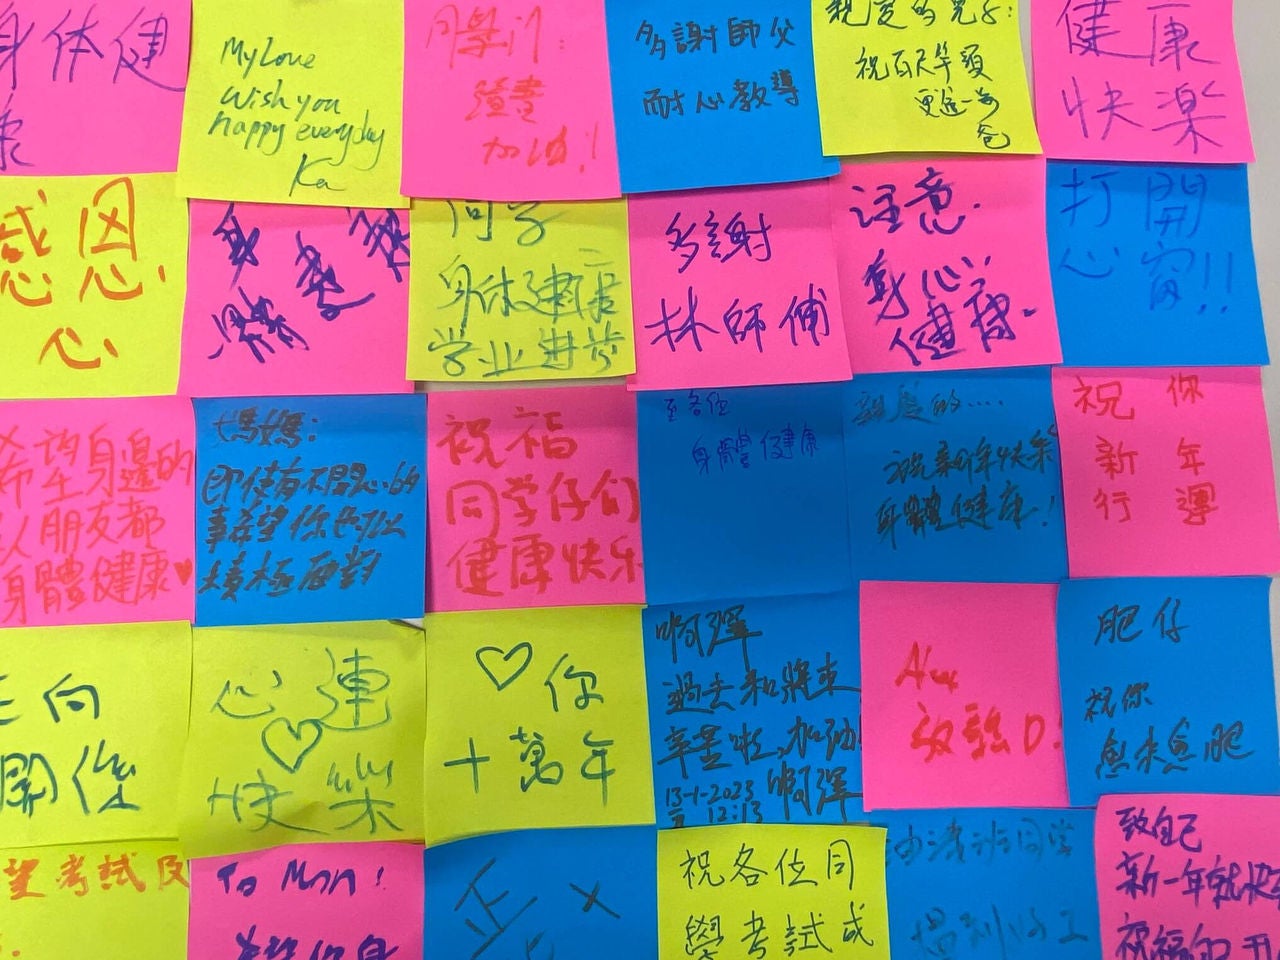 身体健
康
My Love
Wish you
happy everyday
Ka
同學们:
讀書
加油!!
多謝師父
耐心教導
親愛的兒子:
祝百尺竿頭
更進一步
爸
健康
快楽
感恩.
心
身
體
健
康
同学
身体健康
学业进步
多謝
林師傅
注意.
身心
健康.
打開
心窗!!
希望身邊的
朋友都
身體健康♥
媽媽:
即使有不開心的
事希望你也可以
積極面對
祝福
同学仔们
健康快乐
至各位
身體健康
親愛的....
祝新年快樂
身體健康!
祝你
新年
行運
正向
關係
心連
♡
快樂
♡你
十萬年
啊輝
過去和將來
辛苦啦,加油!
13-1-2023 啊輝
12:13
Alex
放鬆D!
肥仔
祝你
愈來愈肥
望考試及
To Man!
正
祝各位同
學考試成
班同学
致自己
新一年就快
祝福